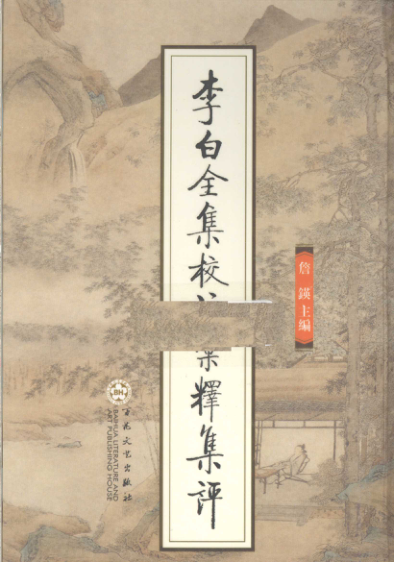 李白全集校釋集評
詹鍈主編
BH
百花文艺出版社
BAIHUA LITERATURE AND
ART PUBLISHING HOUSE